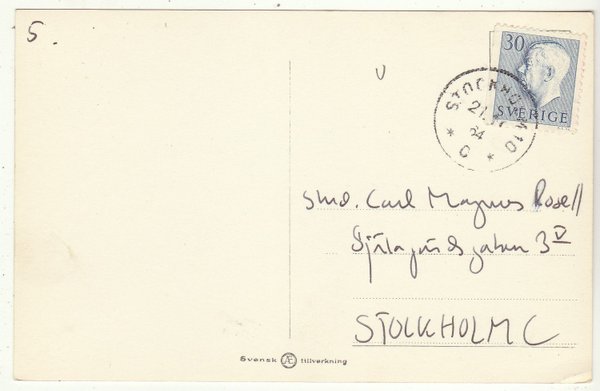 5.
30
SVERIGE
STOCKHOLM 10
21.
54
* C *
Stud. Carl Magnus Rosell
3 V
STOCKHOLM C
Svensk Æ tillverkning